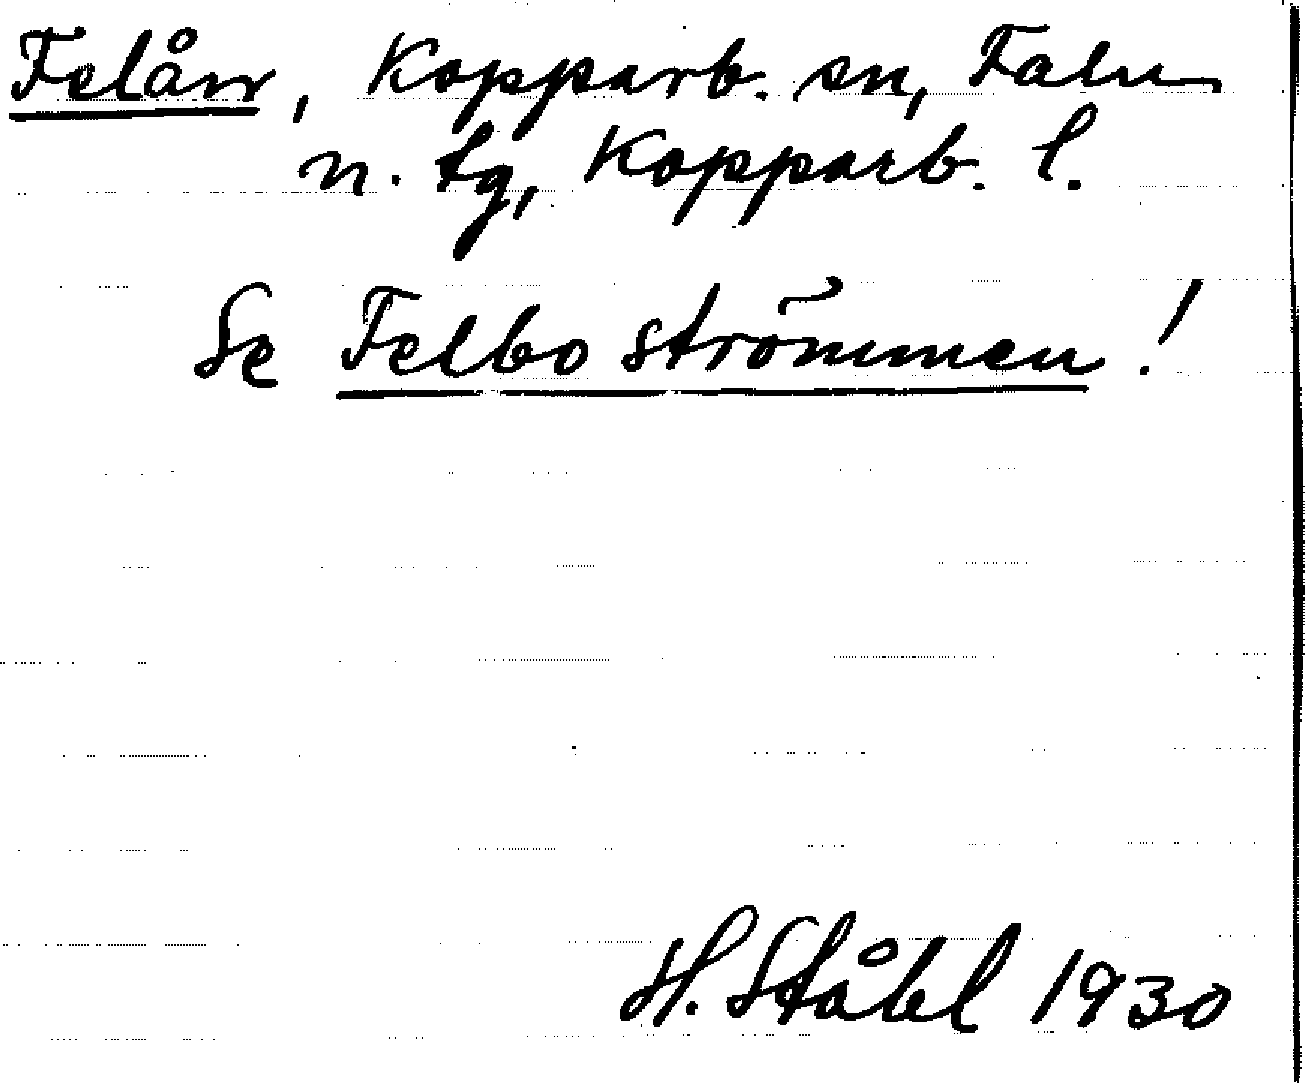 Felån, Kopparb. sn, Falu
n. tg, Kopparb. l.
Se Felboströmmen!
H. Ståhl 1930